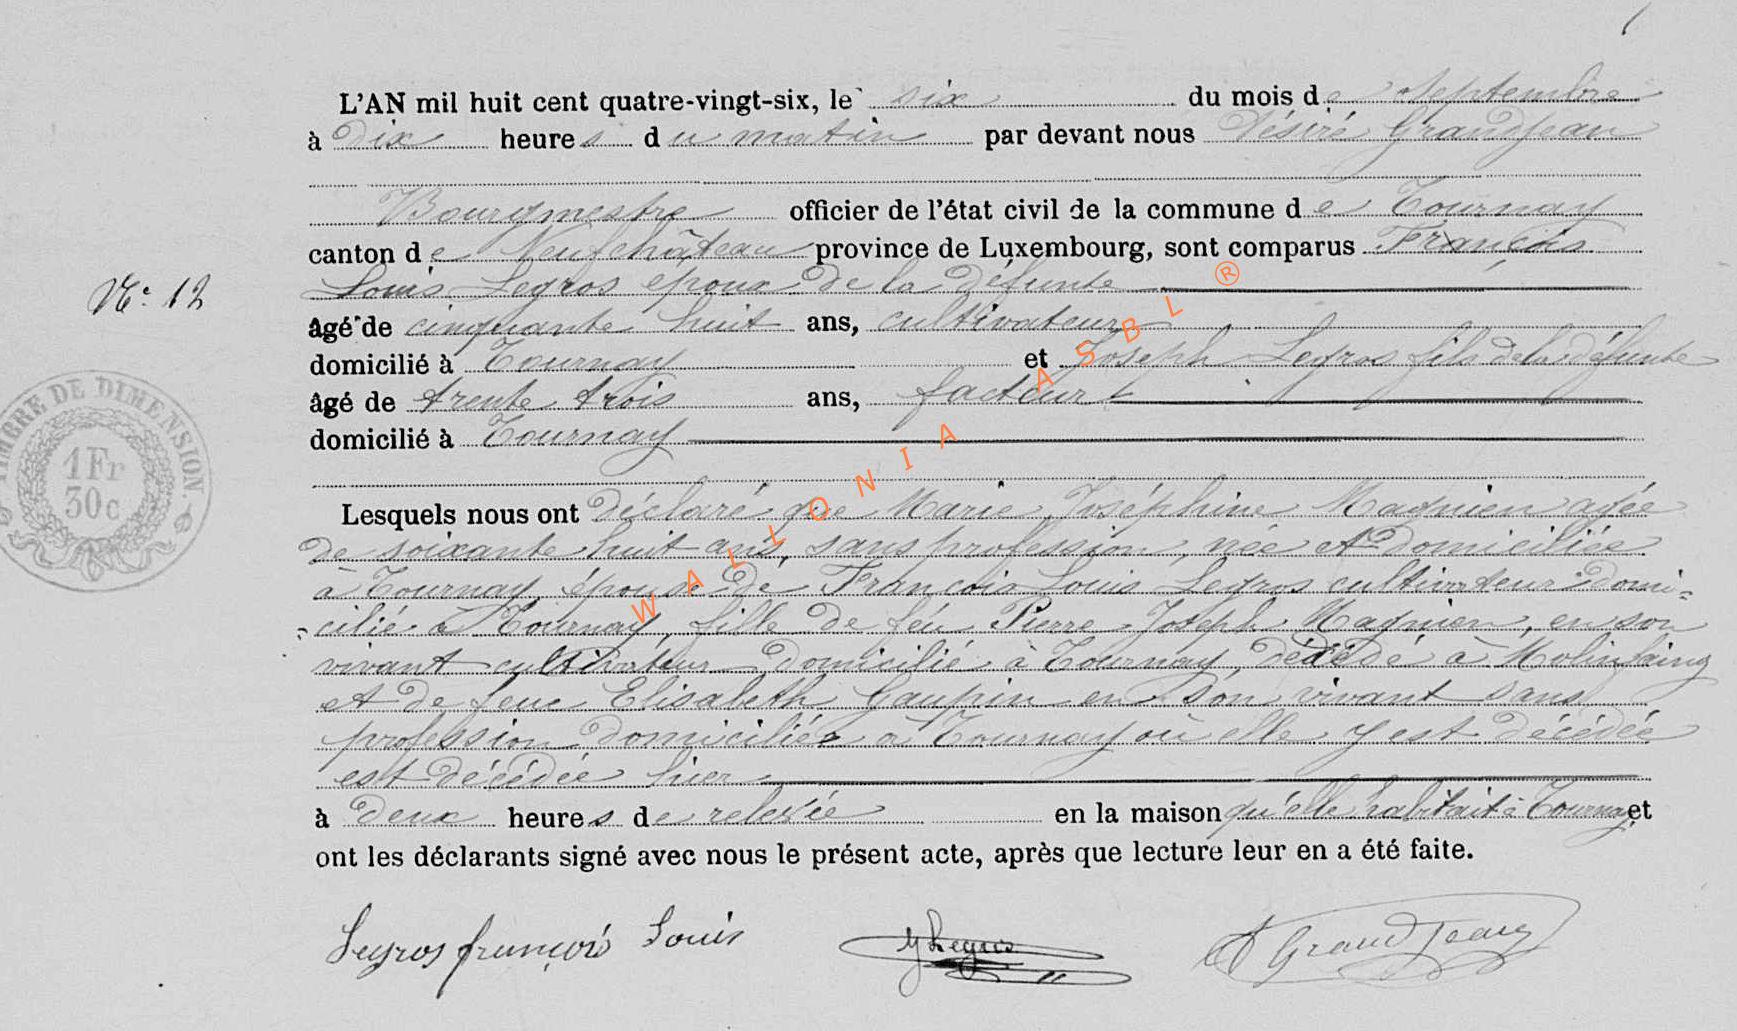 L'AN mil huit cent quatre-vingt-six, le six du mois de Septembre
à dix heures du matin par devant nous Désiré Grandjean
Bourgmestre officier de l'état civil de la commune de Tournay
canton de Neufchâteau province de Luxembourg, sont comparus François
Louis Legros epoux de la défunte
N° 12
âgé de cinquante huit ans, cultivateur
domicilié à Tournay et Joseph Legros fils de la défunte
âgé de trente trois ans, facteur
domicilié à Tournay
TIMBRE DE DIMENSION.
1 Fr
30c
Lesquels nous ont déclaré que Marie Joséphine Magnien agée
de soixante huit ans, sans profession, née et domiciliée
à Tournay, épouse de François Louis Legros cultivateur domi-
cilié à Tournay, fille de feu Pierre Joseph Magnien, en son
vivant cultivateur domicilié à Tournay, décédé à Molinfaing
et de feue Elisabeth Gaupin en son vivant sans
profession domiciliée à Tournay où elle y est décédée
est décédée hier
à deux heures de relevée en la maison qu'elle habitait à Tournay et
ont les déclarants signé avec nous le présent acte, après que lecture leur en a été faite.
Legros françois Louis JLegros DGrandjean
WALLONIA ASBL ®